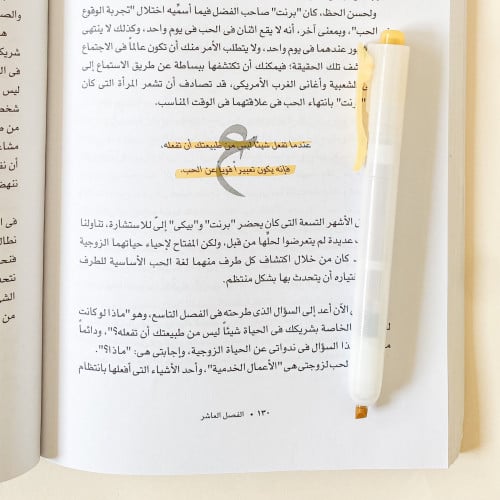 ولحسن الحظ، كان "برنت" صاحب الفضل فيما أسمِّيه اختلال "تجربة الوقوع
فى الحب"، وبمعنى آخر، أنه لا يقع اثنان فى الحب فى يوم واحد، وكذلك لا ينتهى
عندهما فى يوم واحد، ولا يتطلب الأمر منك أن تكون عالماً فى الاجتماع
تلك الحقيقة؛ فيمكنك أن تكتشفها ببساطة عن طريق الاستماع إلى
الشعبية وأغانى الغرب الأمريكى، قد تصادف أن تشعر المرأة التى كان
"برنت" بانتهاء الحب فى علاقتهما فى الوقت المناسب.
عندما تفعل شيئاً ليس من طبيعتك أن تفعله،
فإنه يكون تعبيراً قوياً عن الحب.
الأشهر التسعة التى كان يحضر "برنت" و"بيكى" إلىَّ للاستشارة، تناولنا
عديدة لم يتعرضوا لحلها من قبل، ولكن المفتاح لإحياء حياتهما الزوجية
كان من خلال اكتشاف كل طرف منهما لغة الحب الأساسية للطرف
اختياره أن يتحدث بها بشكل منتظم.
الآن أعد إلى السؤال الذى طرحته فى الفصل التاسع، وهو "ماذا لو كانت
الخاصة بشريكك فى الحياة شيئاً ليس من طبيعتك أن تفعله؟"، ودائماً
السؤال فى ندواتى عن الحياة الزوجية، وإجابتى هى: "ماذا؟".
لحب لزوجتى هى "الأعمال الخدمية"، وأحد الأشياء التى أفعلها بانتظام
١٣٠ • الفصل العاشر